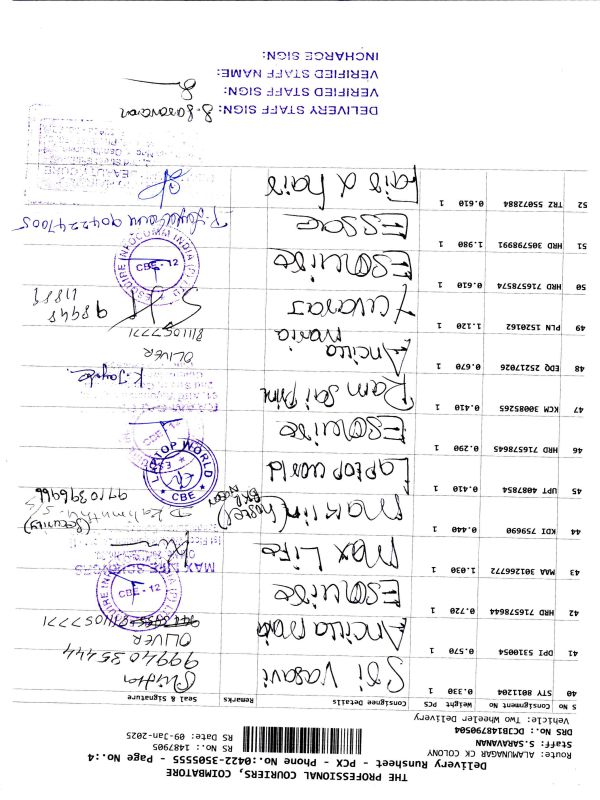 THE PROFESSIONAL COURIERS, COIMBATORE
Delivery Runsheet - PCX - Phone No.:0422-3505555 - Page No.:4
Route: ALAMUNAGAR CK COLONY
Staff: S.SARAVANAN
RS No.: 1487905
DRS No.: DCJB148790504
RS Date: 09-Jan-2025
Vehicle: Two Wheeler Delivery
S No Consignment No Weight PCS Consignee Details Remarks Seal & Signature
40 STY 8011204 0.330 1 Sri Vasavi 9994035444
41 DPI 5310054 0.570 1 Ancilla maria OLIVER 8111057771
42 HRD 716578644 0.720 1 ESQUIRE ESQUIRE INFOCOMM INDIA (P) LTD CBE - 12
43 MAA 301266772 1.030 1 Max Life MAX LIFE SCIENCES
44 KDI 790696 0.440 1 Maklin (hostel (Security)
45 UPT 4087854 0.410 1 Laptop world 9710396966 LAPTOP WORLD CBE
46 HRD 716578645 0.290 1 ESQUIRE CBE - 12
47 KCM 30085265 0.410 1 Ram Sai Print
48 EDQ 25217026 0.670 1 Ancilla maria OLIVER 8111057771
49 PLN 1520162 1.120 1 Yuvaraj 98948 11888
50 HRD 716578574 0.610 1 ESQUIRE ESQUIRE INFOCOMM INDIA (P) LTD CBE - 12
51 HRD 305798991 1.980 1 ESSAE 9042247005
52 TRZ 55072884 0.610 1 Fair & hair
DELIVERY STAFF SIGN: S. Saravanan
VERIFIED STAFF SIGN:
VERIFIED STAFF NAME:
INCHARGE SIGN: